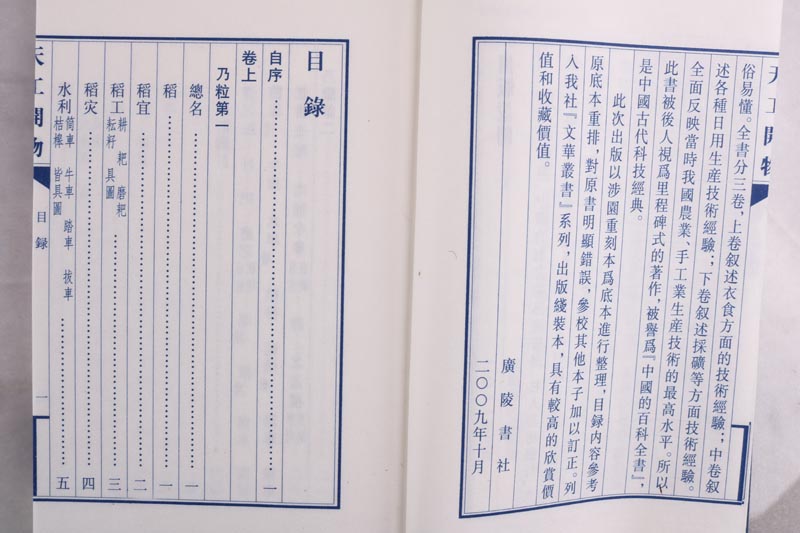 天工開物
俗易懂。全書分三卷，上卷叙述衣食方面的技術經驗；中卷叙
述各種日用生産技術經驗；下卷叙述採礦等方面技術經驗。
全面反映當時我國農業、手工業生産技術的最高水平。所以
此書被後人視爲里程碑式的著作，被譽爲『中國的百科全書』，
是中國古代科技經典。
此次出版以涉園重刻本爲底本進行整理，目録内容參考
原底本重排，對原書明顯錯誤，參校其他本子加以訂正。列
入我社『文華叢書』系列，出版綫裝本，具有較高的欣賞價
值和收藏價值。
廣陵書社
二〇〇九年十月
目録
自序 一
卷上
乃粒第一
總名 一
稻 一
稻宜 二
稻工 耕 耙 磨耙 耘耔 具圖 三
稻灾 四
水利 筒車 牛車 踏車 拔車 桔槔 皆具圖 五
天工開物
目録
一